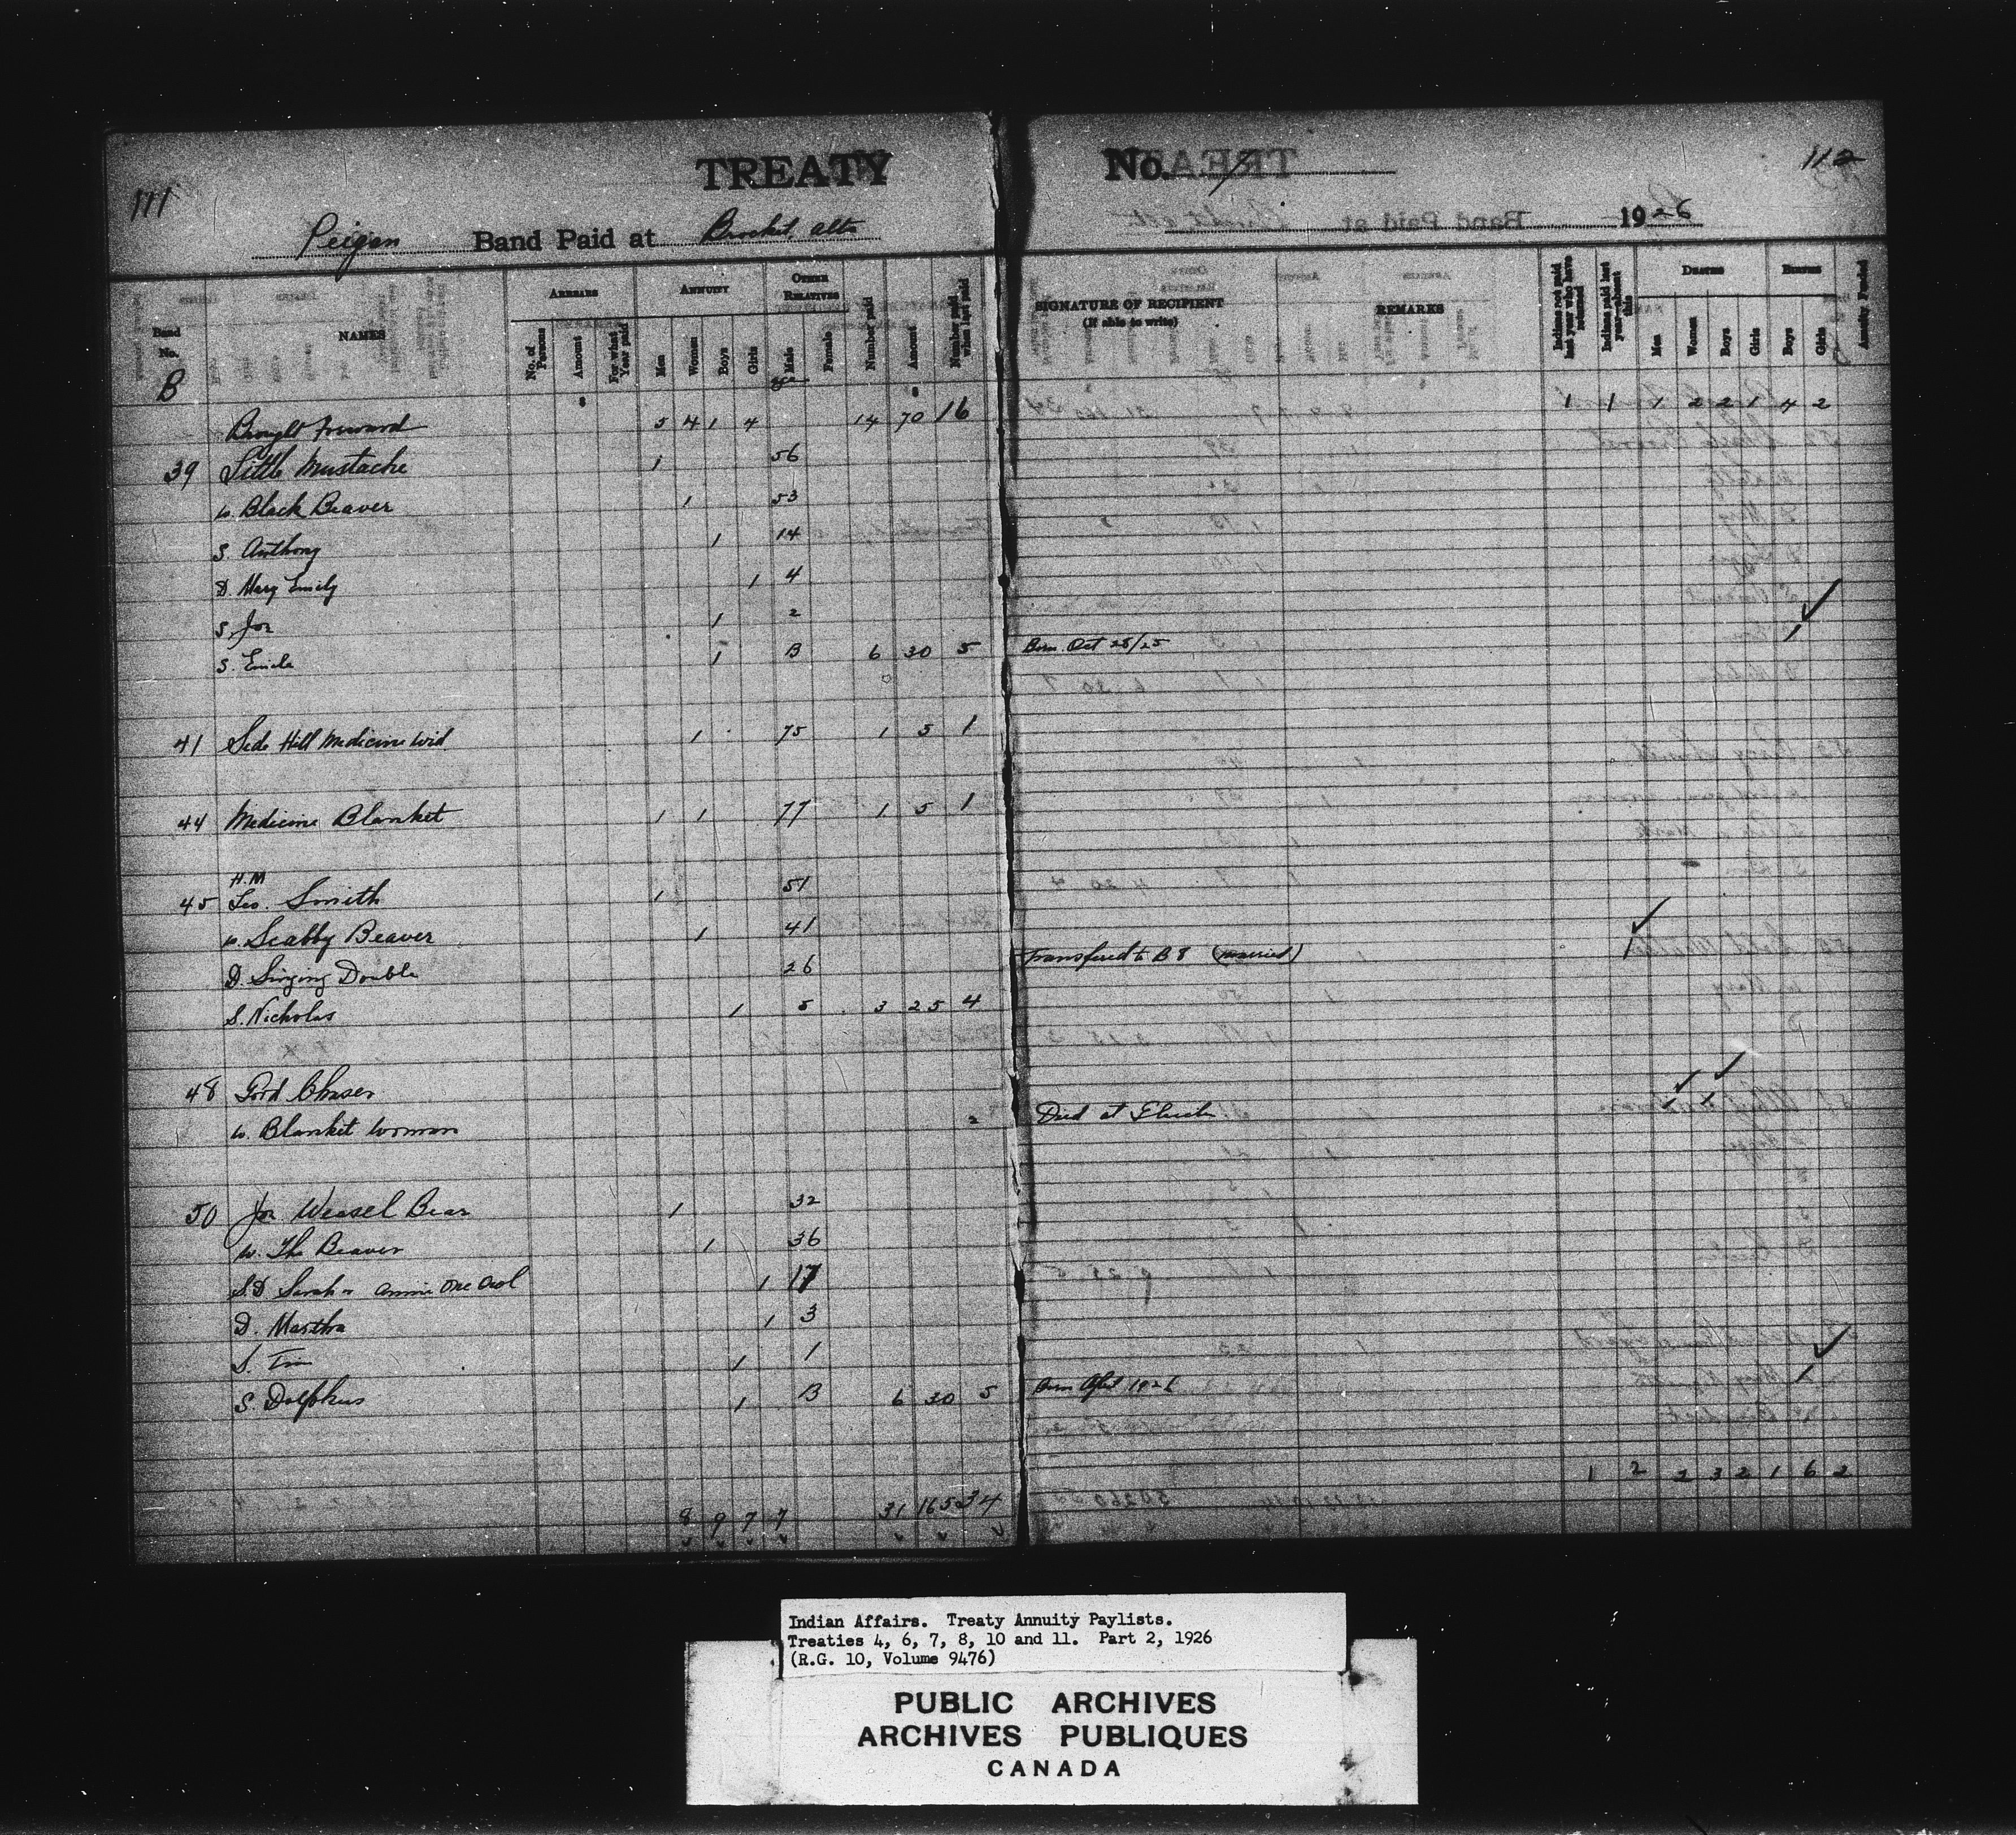 111
TREATY No. 7
112
Peigan Band Paid at Brocket Alta 1926
Band No. NAMES ARREARS No. of Persons Amount For what Year paid ANNUITY Men Women Boys Girls OTHER RELATIVES Male Female Number paid Amount Number paid when last paid SIGNATURE OF RECIPIENT (if able to write) REMARKS Indians not paid last year who have returned Indians paid last year—absent this DEATHS Men Women Boys Girls BIRTHS Boys Girls Annuity Funded
B
Brought Forward 5 4 1 4 14 70 16 1 1 1 2 2 1 4 2
39 Little Mustache 1 56
w. Black Beaver 1 53
S. Anthony 1 14
D. Mary Emily 1 4
S. Joe 1 2
S. 1 B 6 30 5 Born Oct 28/25 1
41 Side Hill Medicine Wid 1 75 1 5 1
44 Medicine Blanket 1 1 77 1 5 1
H.M
45 Geo. Smith 1 51
w. Scabby Beaver 1 41
D. Singing Double 26 Transfered to B 8 (married) 1
S. Nicholas 1 5 3 25 4
48 Chaser
w. Blanket Woman 2 Died at 1 1
50 Joe Weasel Bear 1 32
w. The Beaver 1 36
S.D Sarah or Annie One Owl 1 17
D. Martha 1 3
S. 1 1
S. Dolphus 1 B 6 30 5 Born April 1926 1
8 9 7 7 31 165 34 1 2 2 3 2 1 6 2
Indian Affairs. Treaty Annuity Paylists.
Treaties 4, 6, 7, 8, 10 and 11. Part 2, 1926
(R.G. 10, Volume 9476)
PUBLIC ARCHIVES
ARCHIVES PUBLIQUES
CANADA